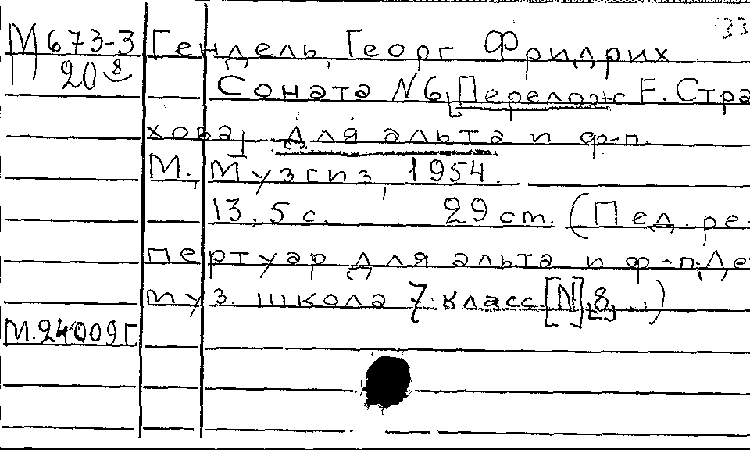 33
М673-3 Гендель, Георг Фридрих
20 8
Соната N6, [Перелож. Е. Стра
хова] для альта и ф-п.
М., Музгиз, 1954.
13, 5 с. 29 cm. (Пед. ре-
пертуар для альта и ф-п. Де
муз. школа 7 класс [N] 8 ...)
М.24009Г